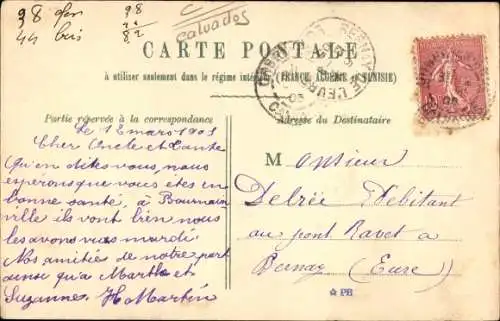 98
Calvados
CARTE POSTALE
à utiliser seulement dans le régime intérieur (FRANCE, ALGÉRIE et TUNISIE)
Partie réservée à la correspondance
Le 12 mars 1905
Cher Oncle et Tante
Qu'en dites vous, nous
espérons que vous êtes en
bonne santé, à
ville ils vont bien nous
les avons vus mardi.
Nos amitiés de notre part
ainsi qu'à Marthe et
Suzanne. H. Martin
Adresse du Destinataire
Monsieur
Delrée Débitant
au pont Ravet a
Bernay (Eure)
☆ PB